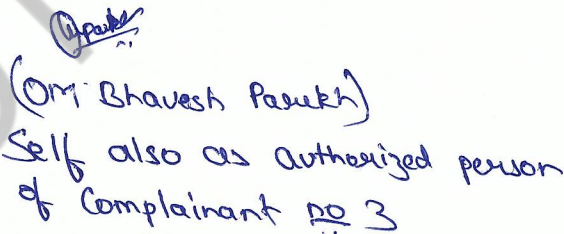 (Om Bhavesh Parekh)
Self also as authorized person
of Complainant no 3